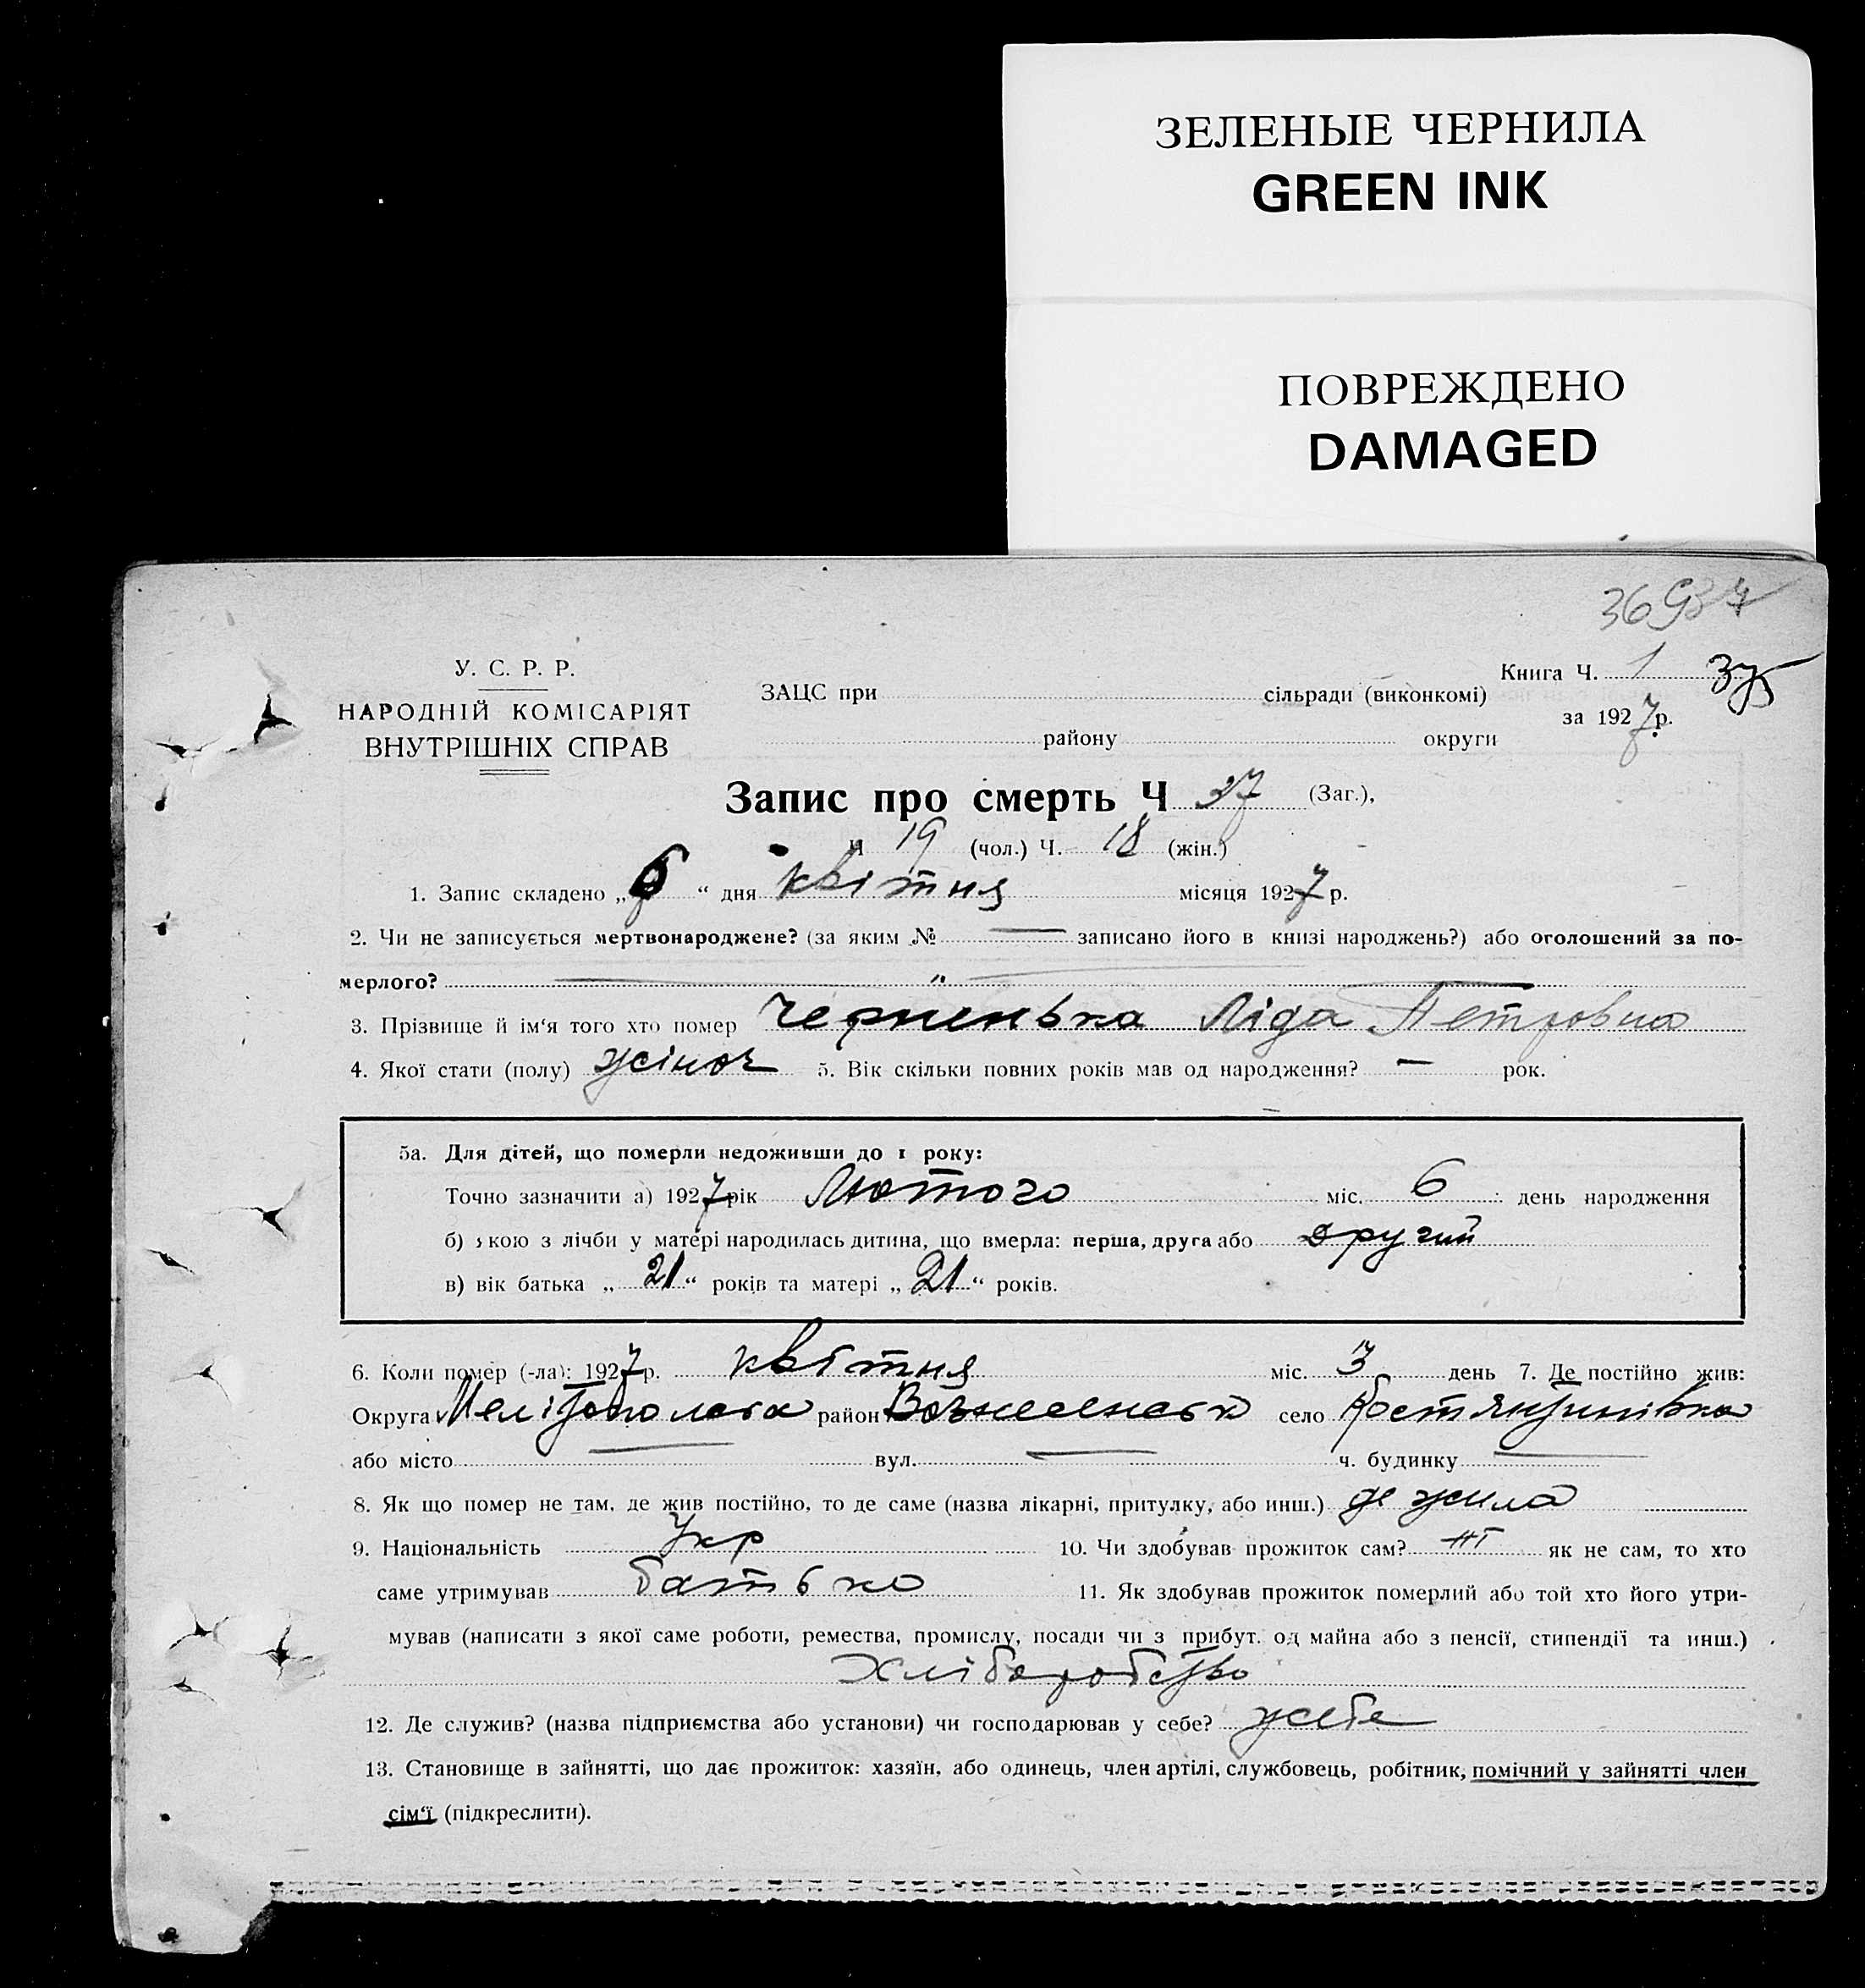 ЗЕЛЕНЫЕ ЧЕРНИЛА
GREEN INK
ПОВРЕЖДЕНО
DAMAGED
У. С. Р. Р.
НАРОДНІЙ КОМІСАРІЯТ
ВНУТРІШНІХ СПРАВ
Книга Ч. 1
ЗАЦС при сільради (виконкомі)
за 1927 р.
району округи
Запис про смерть Ч 37 (Заг.),
Ч 19 (чол.) Ч. 18 (жін.)
1. Запис складено „6“ дня квітня місяця 1927 р.
2. Чи не записується мертвонароджене? (за яким № — записано його в книзі народжень?) або оголошений за по-
мерлого? — „ —
3. Прізвище й ім‘я того хто помер Черненька Ліда Петровна
4. Якої стати (полу) жіноч 5. Вік скільки повних років мав од народження? — рок.
5а. Для дітей, що померли недоживши до 1 року:
Точно зазначити а) 1927 рік Лютого міс. 6 день народження
б) якою з лічби у матері народилась дитина, що вмерла: перша, друга або другий
в) вік батька „21“ років та матері „21“ років.
6. Коли помер (-ла): 1927 р. квітня міс. 3 день 7. Де постійно жив:
Округа район село Костянтинівка
або місто — вул. — ч. будинку —
8. Як що помер не там, де жив постійно, то де саме (назва лікарні, притулку, або инш.) де жила
9. Національність Укр 10. Чи здобував прожиток сам? ні як не сам, то хто
саме утримував батько 11. Як здобував прожиток померлий або той хто його утри-
мував (написати з якої саме роботи, ремества, промислу, посади чи з прибут. од майна або з пенсії, стипендії та инш.)
Хліборобство
12. Де служив? (назва підприємства або установи) чи господарював у себе? усебе
13. Становище в зайнятті, що дає прожиток: хазяїн, або одинець, член артілі, службовець, робітник, помічний у зайнятті член
сім‘ї (підкреслити).